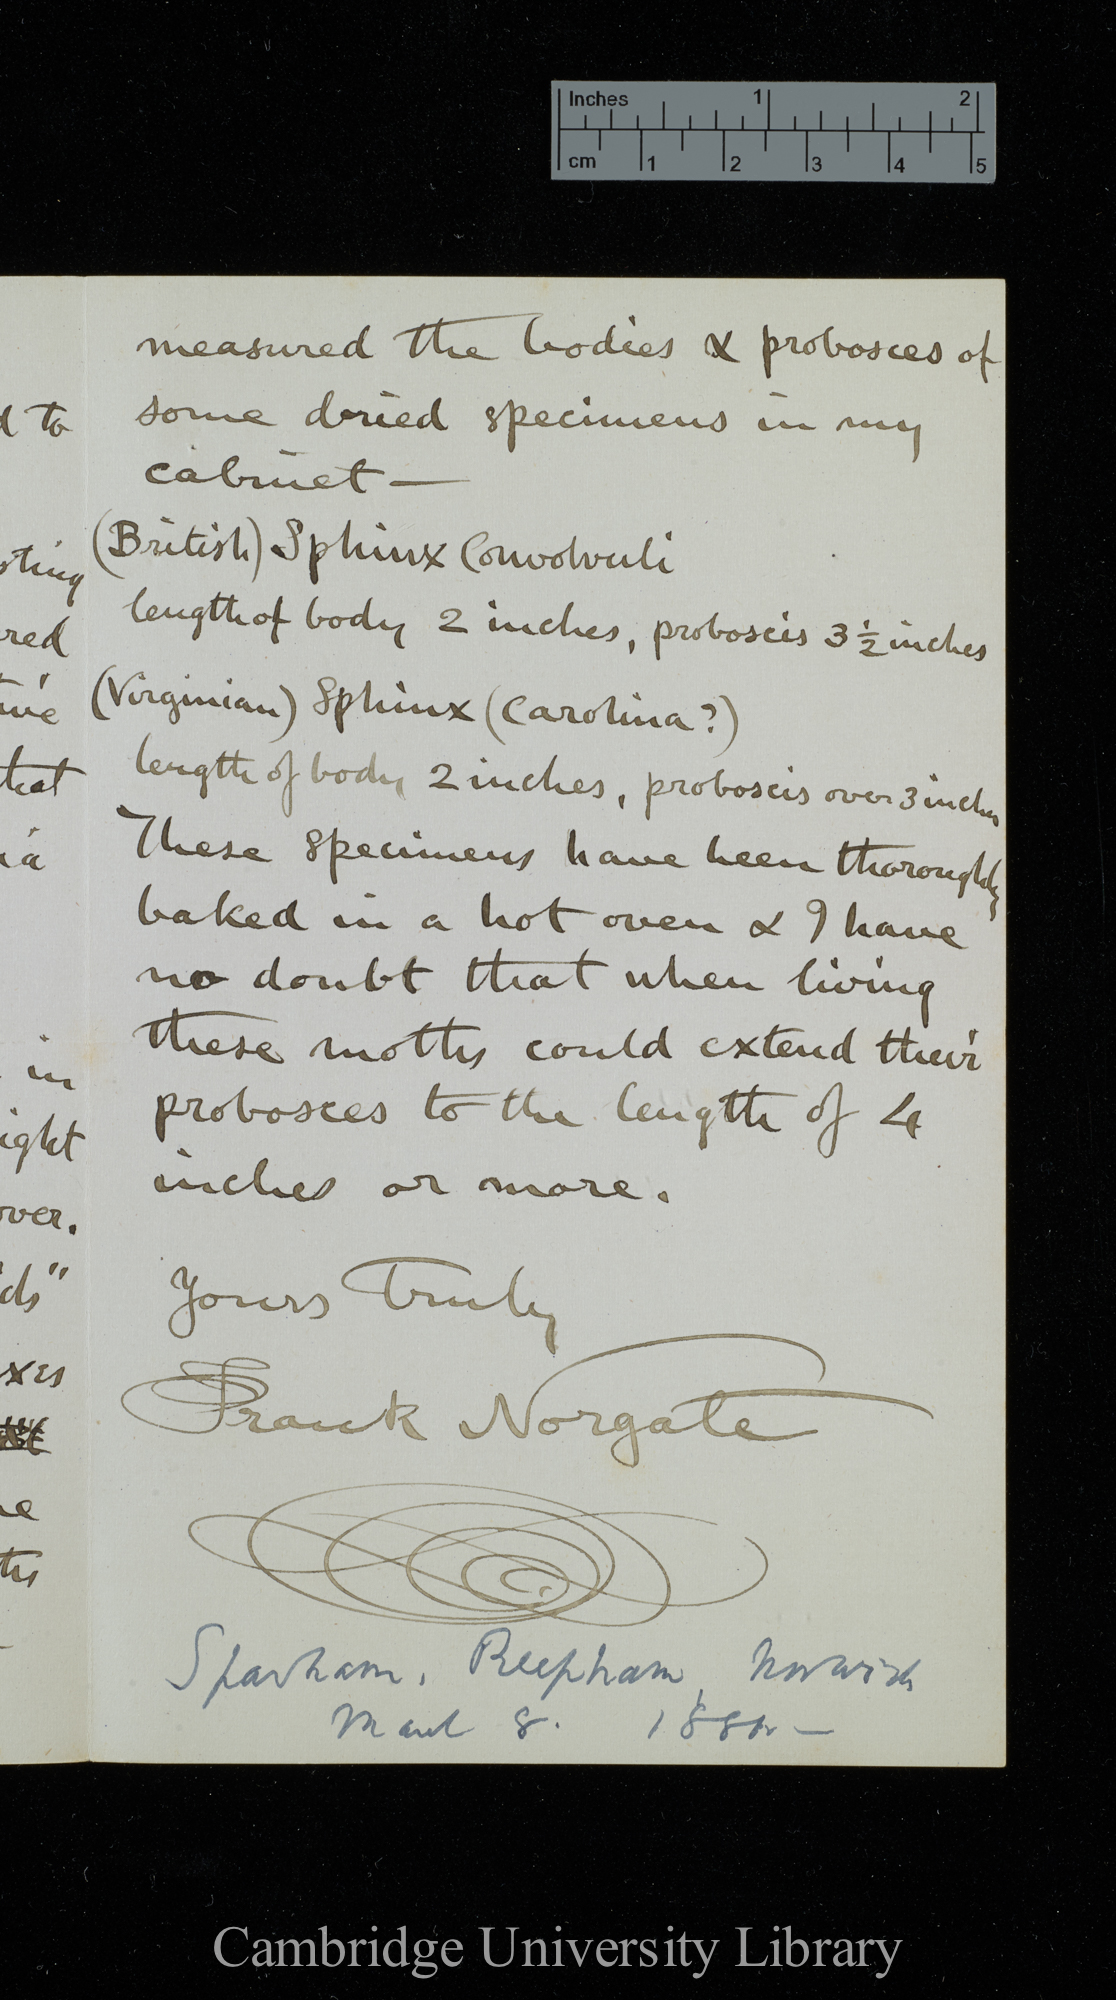 Inches 1 2
cm 1 2 3 4 5
d to
sting
red
that
in
ight
over.
ds"
xes
measured the bodies & probosces of
some dried specimens in my
cabinet —
(British) Sphinx Convolvuli
length of body 2 inches, proboscis 3 ½ inches
(Virginian) Sphinx (Carolina?)
length of body 2 inches, proboscis over 3 inches
These specimens have been thoroughly
baked in a hot oven & I have
no doubt that when living
these moths could extend their
probosces to the length of 4
inches or more.
Yours Truly
Frank Norgate
Sparham, Reepham, Norwich
March 8. 188
Cambridge University Library